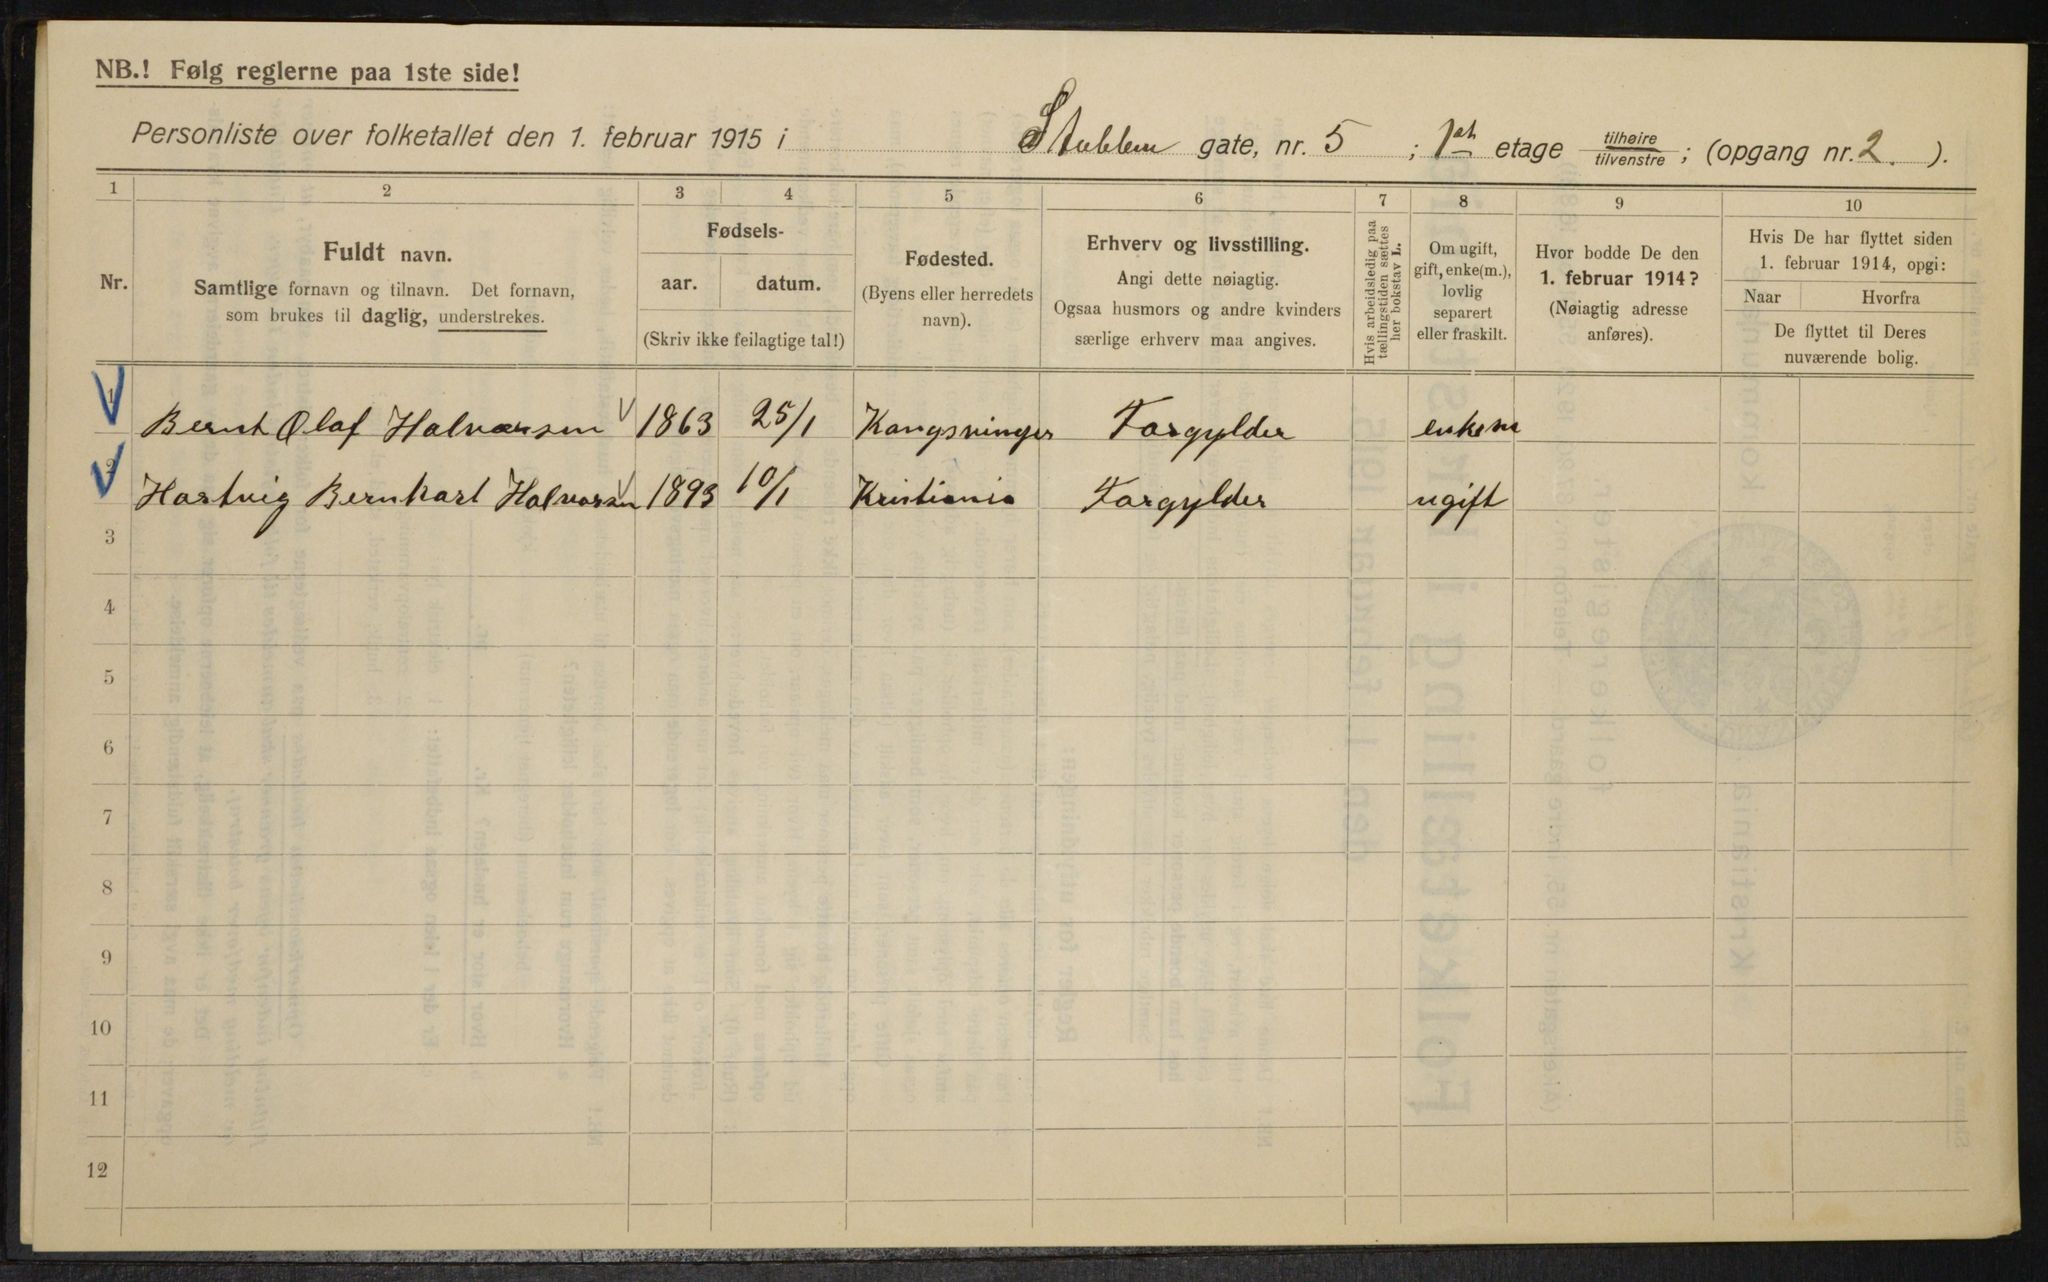 NB.! Følg reglerne paa 1ste side!
Personliste over folketallet den 1. februar 1915 i Stubben gate, nr. 5 ; 1st etage tilhøire/tilvenstre ; (opgang nr. 2. ).
1 2 3 4 5 6 7 8 9 10
Nr.
Fuldt navn.
Samtlige fornavn og tilnavn. Det fornavn,
som brukes til daglig, understrekes.
Fødsels-
aar. datum.
(Skriv ikke feilagtige tal!)
Fødested.
(Byens eller herredets
navn).
Erhverv og livsstilling.
Angi dette nøiagtig.
Ogsaa husmors og andre kvinders
særlige erhverv maa angives.
Hvis arbeidsledig paa
tællingstiden sættes
her bokstav L.
Om ugift,
gift, enke(m.),
lovlig
separert
eller fraskilt.
Hvor bodde De den
1. februar 1914?
(Nøiagtig adresse
anføres).
Hvis De har flyttet siden
1. februar 1914, opgi:
Naar Hvorfra
De flyttet til Deres
nuværende bolig.
1 Bernt Olaf Halvorsen 1863 25/1 Kongsvinger Forgylder enkem
2 Hartvig Bernhart Halvorsen 1893 10/1 Kristiania Forgylder ugift
3
4
5
6
7
8
9
10
11
12